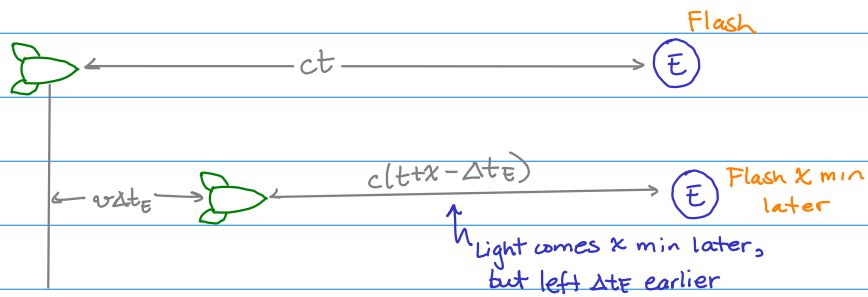 Flash
ct
E
vΔt_E
c(t+x-Δt_E)
E
Flash x min
later
Light comes x min later,
but left Δt_E earlier